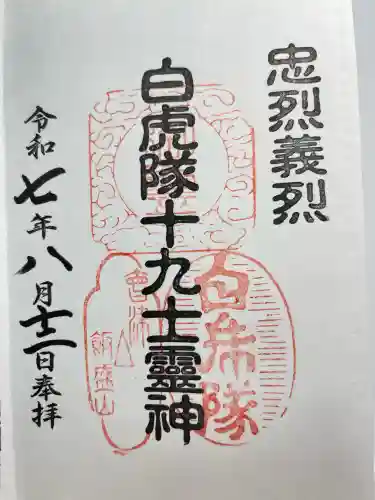 忠烈義烈
白虎隊十九士靈神
令和七年八月十二日奉拝
白乕隊
會津
飯盛山